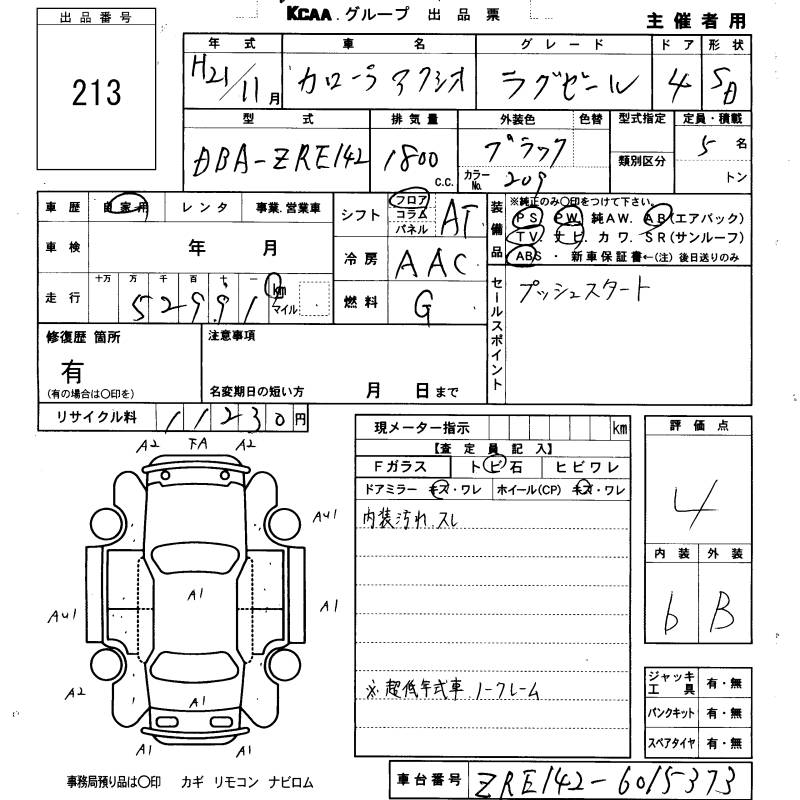 KCAA グループ 出品票
主催者用
出品番号
213
年式 車名 グレード ドア 形状
H21/11月 カローラアクシオ ラグゼール 4 SD
型式 排気量 外装色 色替 型式指定 定員・積載
DBA-ZRE142 1800 C.C. ブラック 類別区分 5名
カラーNo. 209 トン
車歴 自家用 レンタ 事業.営業車
シフト フロア コラム パネル AT
装備品 ※純正のみ〇印をつけて下さい。
PS PW 純AW. AB(エアバック)
TV. ナビ. カワ. SR(サンルーフ)
ABS ・ 新車保証書←(注) 後日送りのみ
車検 年 月
冷房 AAC
走行 十万 万 千 百 十 一 km マイル
52991
燃料 G
セールスポイント プッシュスタート
修復歴 箇所
有
(有の場合は〇印を)
注意事項
名変期日の短い方 月 日まで
リサイクル料 11230円
現メーター指示 km
【査定員記入】
Fガラス トビ石 ヒビワレ
ドアミラー キズ・ワレ ホイール(CP) キズ・ワレ
内装汚れ.スレ
※超低年式車 ノークレーム
評価点
4
内装 外装
6 B
ジャッキ工具 有・無
パンクキット 有・無
スペアタイヤ 有・無
A2 A2
A1 A1
A2 A1
A1 A1
事務局預り品は〇印 カギ リモコン ナビロム
車台番号 ZRE142-6015373